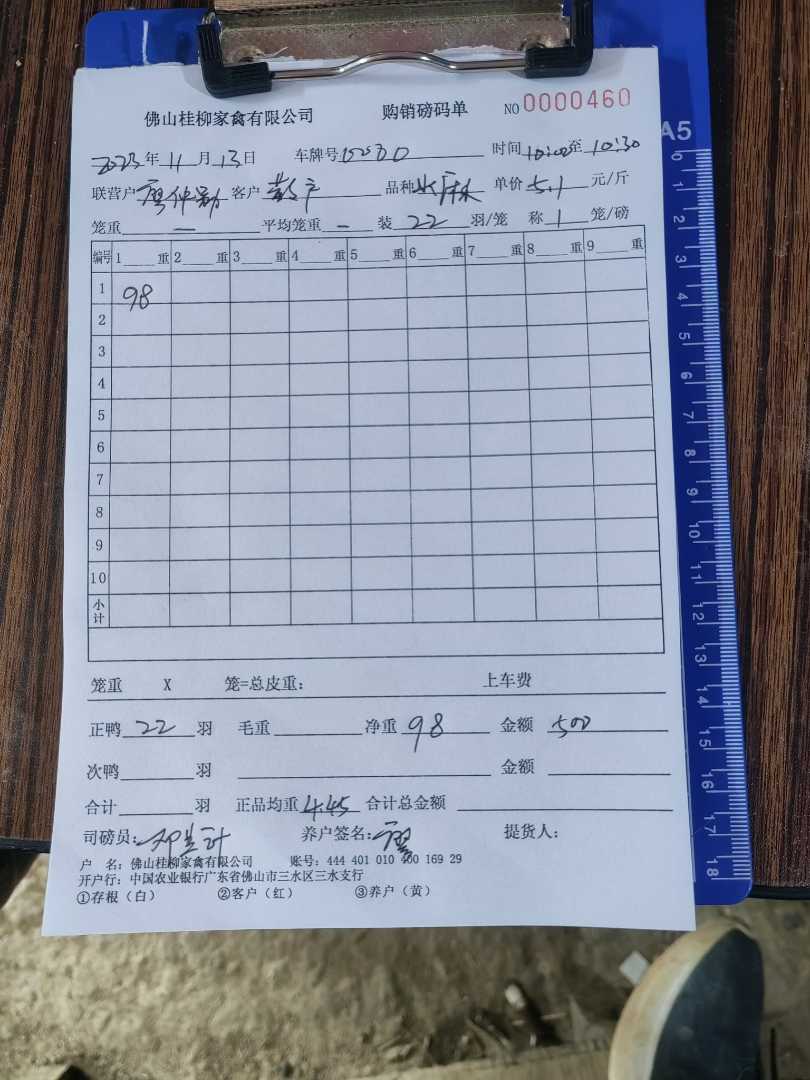 佛山桂柳家禽有限公司 购销磅码单 NO 0000460
2023年11月13日 车牌号 时间10:00至10:30
联营户 客户 品种 单价5.1元/斤
笼重 — 平均笼重 — 装22羽/笼 称1笼/磅
编号 1 重 2 重 3 重 4 重 5 重 6 重 7 重 8 重 9 重
1 98
2
3
4
5
6
7
8
9
10
小计
笼重 X 笼=总皮重: 上车费
正鸭22羽 毛重 净重98 金额500
次鸭 羽 金额
合计 羽 正品均重4.45 合计总金额
司磅员: 养户签名:廖 提货人:
户 名: 佛山桂柳家禽有限公司 账号: 444 401 010 400 169 29
开户行: 中国农业银行广东省佛山市三水区三水支行
①存根(白) ②客户(红) ③养户(黄)
A5
0
1
2
3
4
5
6
7
8
9
10
11
12
13
14
15
16
17
18